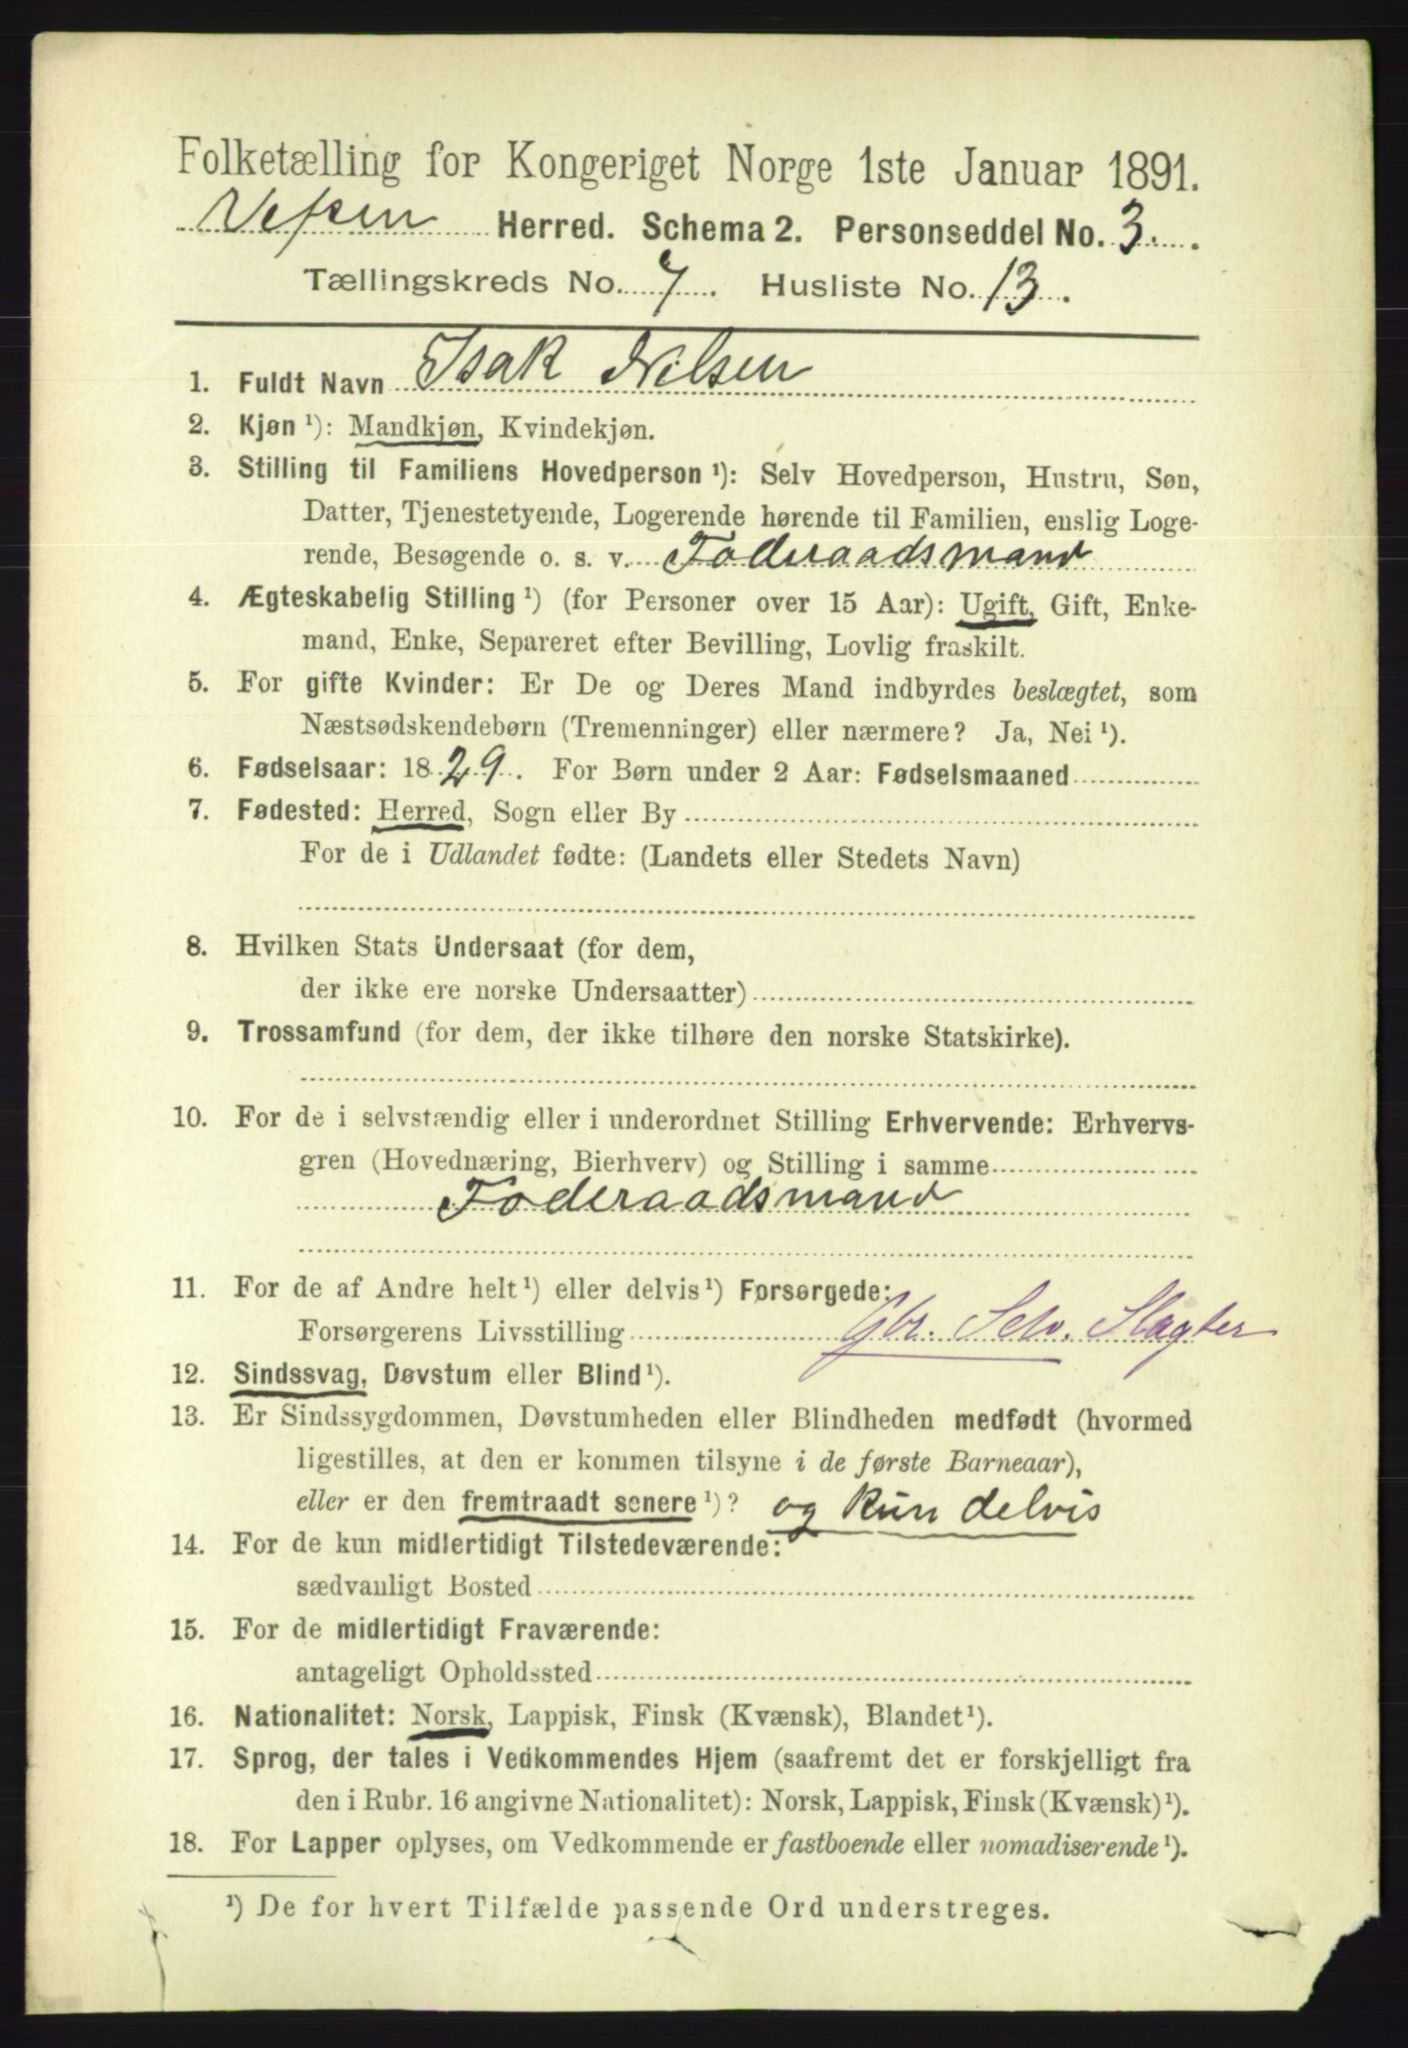 Folketælling for Kongeriget Norge 1ste Januar 1891.
Vefsen Herred. Schema 2. Personseddel No. 3.
Tællingskreds No. 7. Husliste No. 13.
1. Fuldt Navn Isak Nilsen
2. Kjøn ¹): Mandkjøn, Kvindekjøn.
3. Stilling til Familiens Hovedperson ¹): Selv Hovedperson, Hustru, Søn,
Datter, Tjenestetyende, Logerende hørende til Familien, enslig Loge-
rende, Besøgende o. s. v. Foderaadsmand
4. Ægteskabelig Stilling ¹) (for Personer over 15 Aar): Ugift, Gift, Enke-
mand, Enke, Separeret efter Bevilling, Lovlig fraskilt.
5. For gifte Kvinder: Er De og Deres Mand indbyrdes beslægtet, som
Næstsødskendebørn (Tremenninger) eller nærmere? Ja, Nei ¹).
6. Fødselsaar: 1829. For Børn under 2 Aar: Fødselsmaaned
7. Fødested: Herred, Sogn eller By
For de i Udlandet fødte: (Landets eller Stedets Navn)
8. Hvilken Stats Undersaat (for dem,
der ikke ere norske Undersaatter)
9. Trossamfund (for dem, der ikke tilhøre den norske Statskirke).
10. For de i selvstændig eller i underordnet Stilling Erhvervende: Erhvervs-
gren (Hovednæring, Bierhverv) og Stilling i samme
Foderaadsmand
11. For de af Andre helt ¹) eller delvis ¹) Forsørgede:
Forsørgerens Livsstilling Gbr. Selv. Slagter
12. Sindssvag, Døvstum eller Blind ¹).
13. Er Sindssygdommen, Døvstumheden eller Blindheden medfødt (hvormed
ligestilles, at den er kommen tilsyne i de første Barneaar),
eller er den fremtraadt senere ¹)? og kun delvis
14. For de kun midlertidigt Tilstedeværende:
sædvanligt Bosted
15. For de midlertidigt Fraværende:
antageligt Opholdssted
16. Nationalitet: Norsk, Lappisk, Finsk (Kvænsk), Blandet ¹).
17. Sprog, der tales i Vedkommendes Hjem (saafremt det er forskjelligt fra
den i Rubr. 16 angivne Nationalitet): Norsk, Lappisk, Finsk (Kvænsk) ¹).
18. For Lapper oplyses, om Vedkommende er fastboende eller nomadiserende ¹).
¹) De for hvert Tilfælde passende Ord understreges.